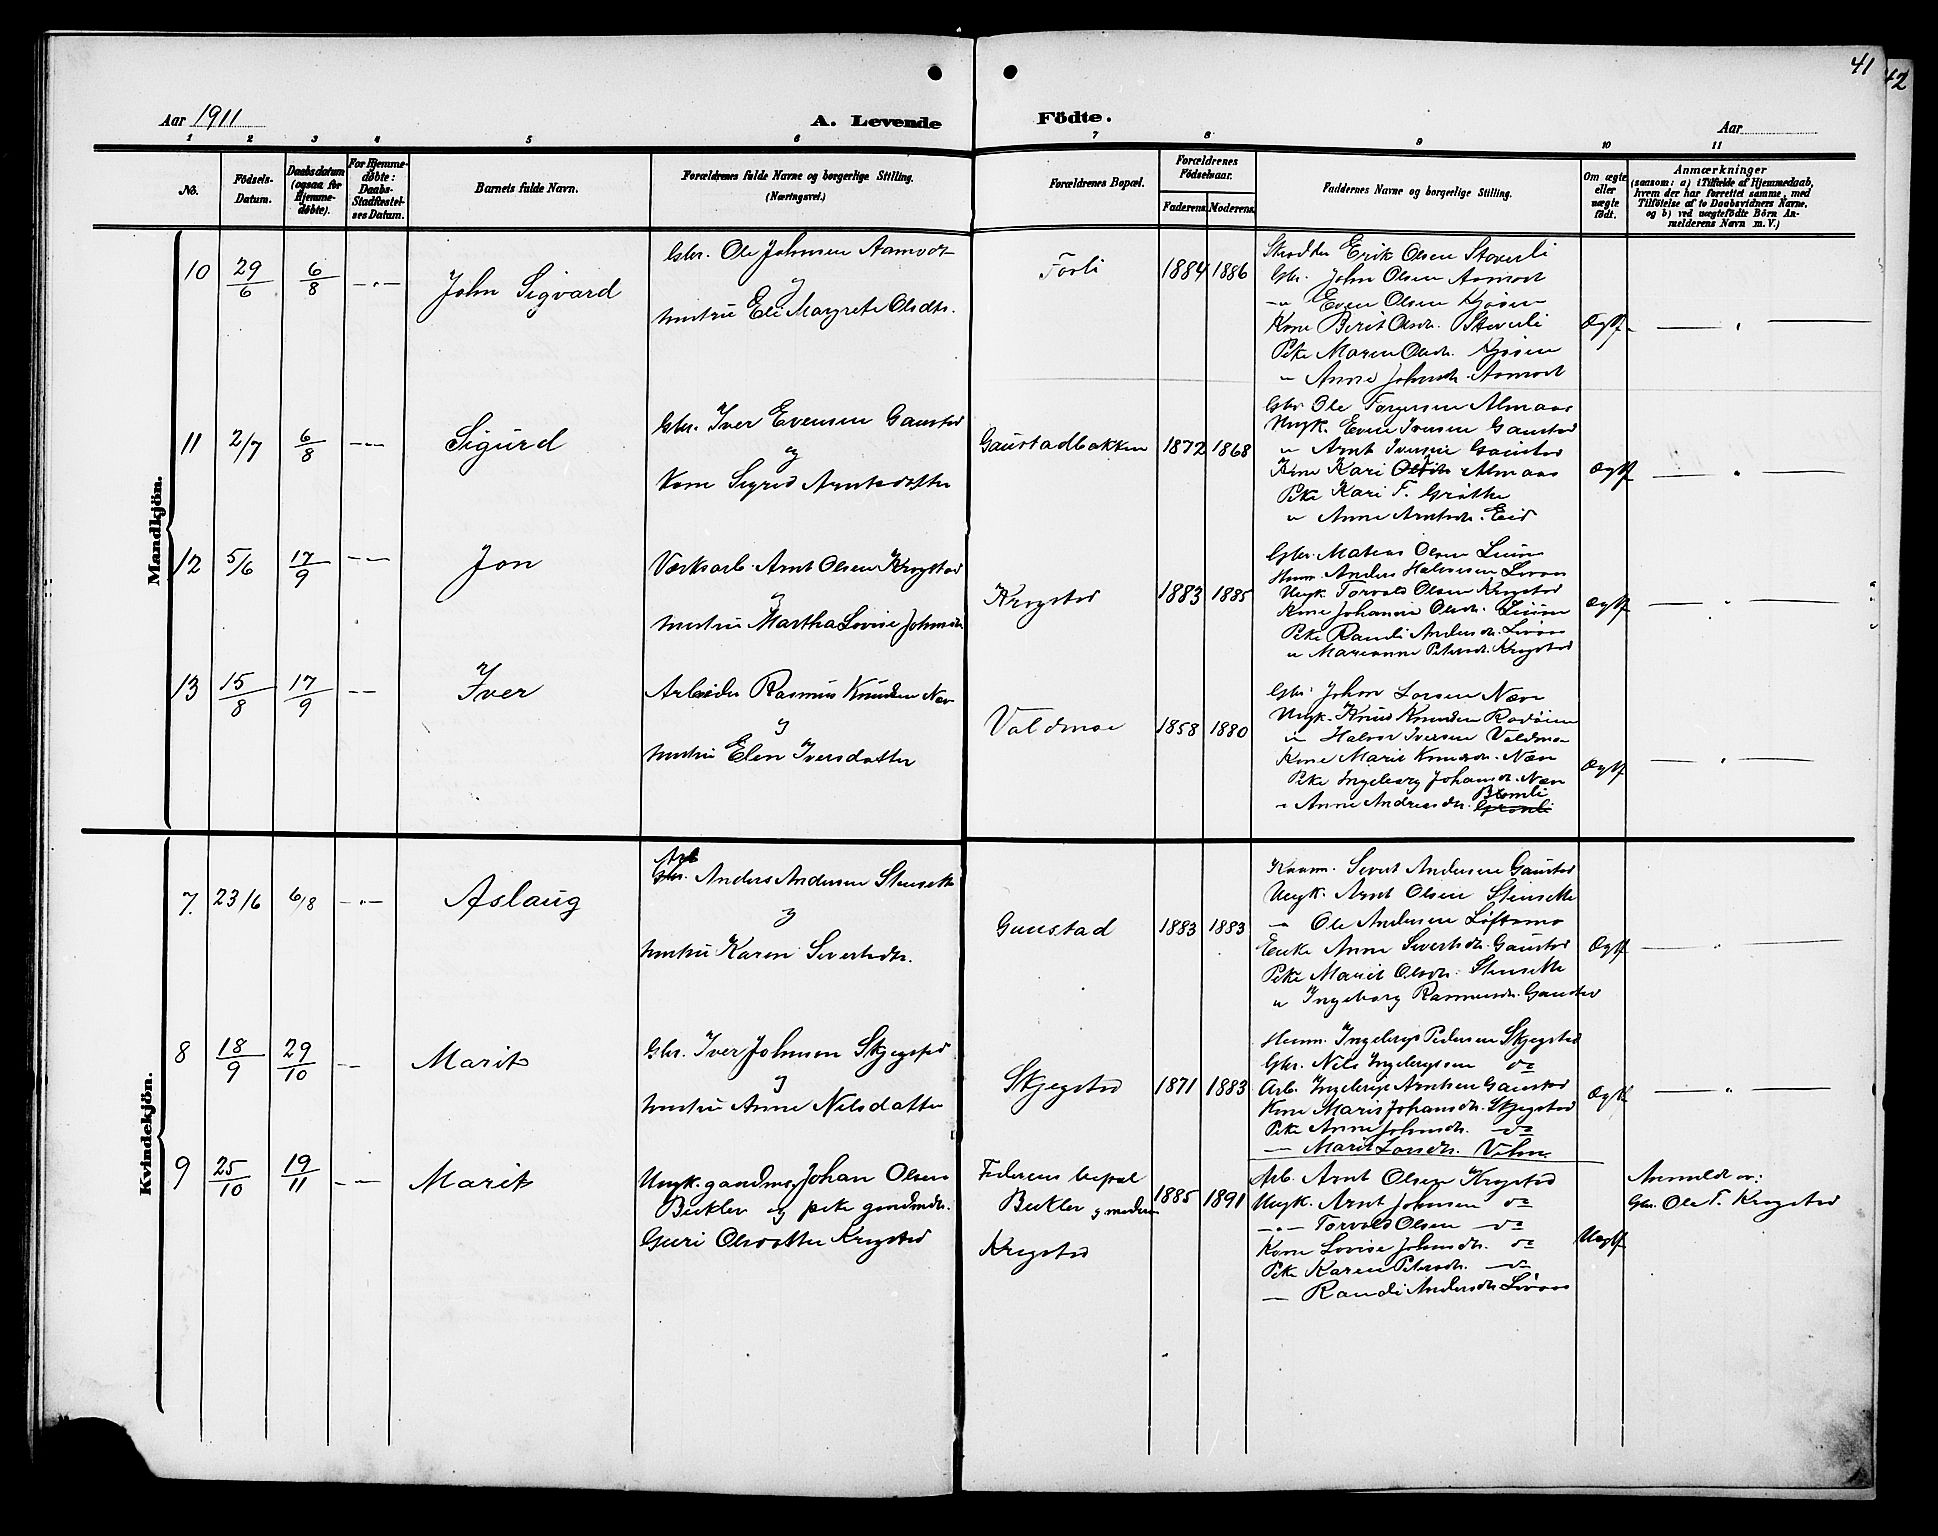 41
42
Aar 1911
A. Levende Födte.
Aar
1 2 3 4 5 6 7 8 9 10 11
No.
Födsels-Datum.
Daabsdatum (ogsaa for Hjemmedøbte).
For Hjemmedøbte: Daabs-Stadfæstelses Datum.
Barnets fulde Navn.
Forældrenes fulde Navne og borgerlige Stilling. (Næringsvei.)
Forældrenes Bopæl.
Forældrenes Födselsaar.
Faderens. Moderens.
Faddernes Navne og borgerlige Stilling.
Om ægte eller uægte født.
Anmærkninger
(saasom: a) i Tilfælde af Hjemmedaab, hvem der har forrettet samme, med Tilföielse af to Daabsvidners Navne, og b) ved uægtefödte Börn Anmelderens Navn m. V.)
Mandkjön.
10 29/6 6/8 —„—
John Sigvard
Gbr. Ole Johnsen Aamodt
og
hustru Eli Margrete Olsdtr.
Forli
1884 1886
Skrædder Erik Olsen Stoverli
Gbr. John Olsen Aamodt
—„ Even Olsen Kjösen
Kone Berit Olsdtr. Stoverli
Pike Maren Olsdtr. Kjösen
— Anne Johnsdtr. Aamodt
Ægtf. — „ —
11 2/7 6/8 —„—
Sigurd
Gbr. Iver Evensen Gaustad
og
Kone Sigrid Arntsdatter
Gaustadbakken
1872 1868
Gbr Ole Torgersen Almaas
Ungk. Even Iversen Gaustad
„ Arnt Iversen Gaustad
Kone Kari Olsdtr Almaas
Pike Kari F. Gröthe
„ Anne Arntsdtr. Eid
Ægtf — „ —
12 5/6 17/9 — —
Jon
Værksarb. Arnt Olsen Krogstad
og
hustru Martha Lovise Johnsdtr
Krogstad
1883 1885
Gbr. Matias Olsen
Husm. Anders Halvorsen
Ungk. Torvald Olsen Krogstad
Kone Johanne Olsdtr.
Pike Randi Andersdtr.
„ Marianne Petersdtr. Krogstad
Ægtf — „ —
13 15/8 17/9 — —
Iver
Arbeider Rasmus Knudsen Næv
og
hustru Elen Iversdatter
Voldmoe
1858 1880
Gbr. Johan Larsen Næve
Ungk. Knud Knudsen
„ Halvor Iversen Voldmoe
Kone Marit Knudsdtr. Næve
Pike Ingeborg Johansdtr. Næve
„ Anne Andreasdtr. Bromli
Grönli
Ægtf — „ —
Kvindekjön.
7. 23/6 6/8 —„—
Aslaug
Arb
Gbr. Anders Andersen Stensette
og
hustru Karen Sivertsdtr.
Gaustad
1883 1883
Kaarm. Sivert Andersen Gaustad
Ungk. Arnt Olsen Stensette
— Ole Andersen Löftamo
Enke Anne Sivertsdtr. Gaustad
Pike Marit Olsdtr. Stensette
„ Ingeborg Rasmusdtr. Gaustad
Ægtf — „ —
8 18/9 29/10 — —
Marit
Gbr. Iver Johnsen Skjegstad
og
hustru Anne Nilsdatter
Skjegstad
1871 1883
Husm. Ingebrigt Pedersen Skjegstad
Gbr. Nils Ingebrigtsen do
Arb. Ingebrigt Arntsen Gaustad
Kone Marit Johansdtr. Skjegstad
Pike Anne Johnsdtr. do
— Marit Larsdtr.
Ægtf — „ —
9 25/10 19/11 — —
Marit
Ungk. gaardms. Johan Olsen
og pike gaardmdtr.
Guri Olsdatter Krogstad
Faderens bopæl
og moderen
Krogstad
1885 1891
Arb. Arnt Olsen Krogstad
Ungk. Arnt Johnsen do
—„— Torvald Olsen do
Kone Lovise Johnsdtr. do
Pike Karen Petersdtr. do
— Randi Andersdtr
Uægtf
Anmeldt av:
Gbr. Ole T. Krogstad